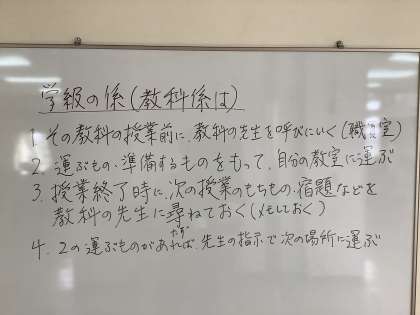 学級の係(教科係は)
1. その教科の授業前に、教科の先生を呼びにいく(職員室)
2. 運ぶもの、準備するものをもって、自分の教室に運ぶ
3. 授業終了時に、次の授業のもちもの、宿題などを
教科の先生に尋ねておく(メモしておく)
たず
4. 2の運ぶものがあれば、先生の指示で次の場所に運ぶ